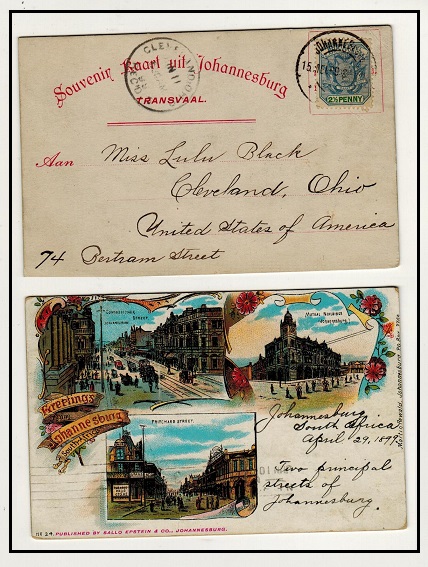 CLEVELAND, OHIO
Souvenir Kaart uit Johannesburg
TRANSVAAL.
JOHANNESBURG
2½ PENNY
Aan Miss Lulu Black
Cleveland, Ohio
United States of America
74 Bertram Street
COMMISSIONER STREET
JOHANNESBURG
MUTUAL BUILDINGS
JOHANNESBURG
Greetings
from
Johannesburg
South Africa
PRITCHARD STREET.
Johannesburg
South Africa
April 29, 1899.
Two principal
streets of
Johannesburg.
No 24. PUBLISHED BY SALLO EPSTEIN & CO., JOHANNESBURG.